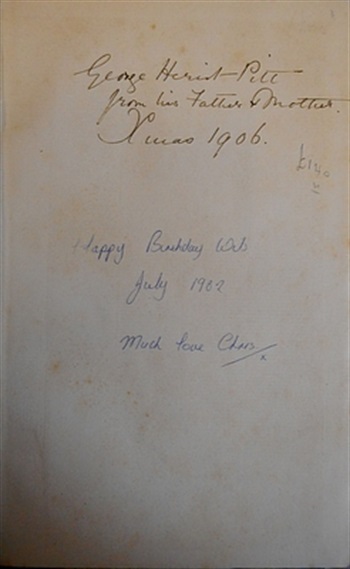 George Heriot-Pitt
from his Father & Mother.
Xmas 1906.
£140
Happy Birthday
July 1982
Much love Chars
x